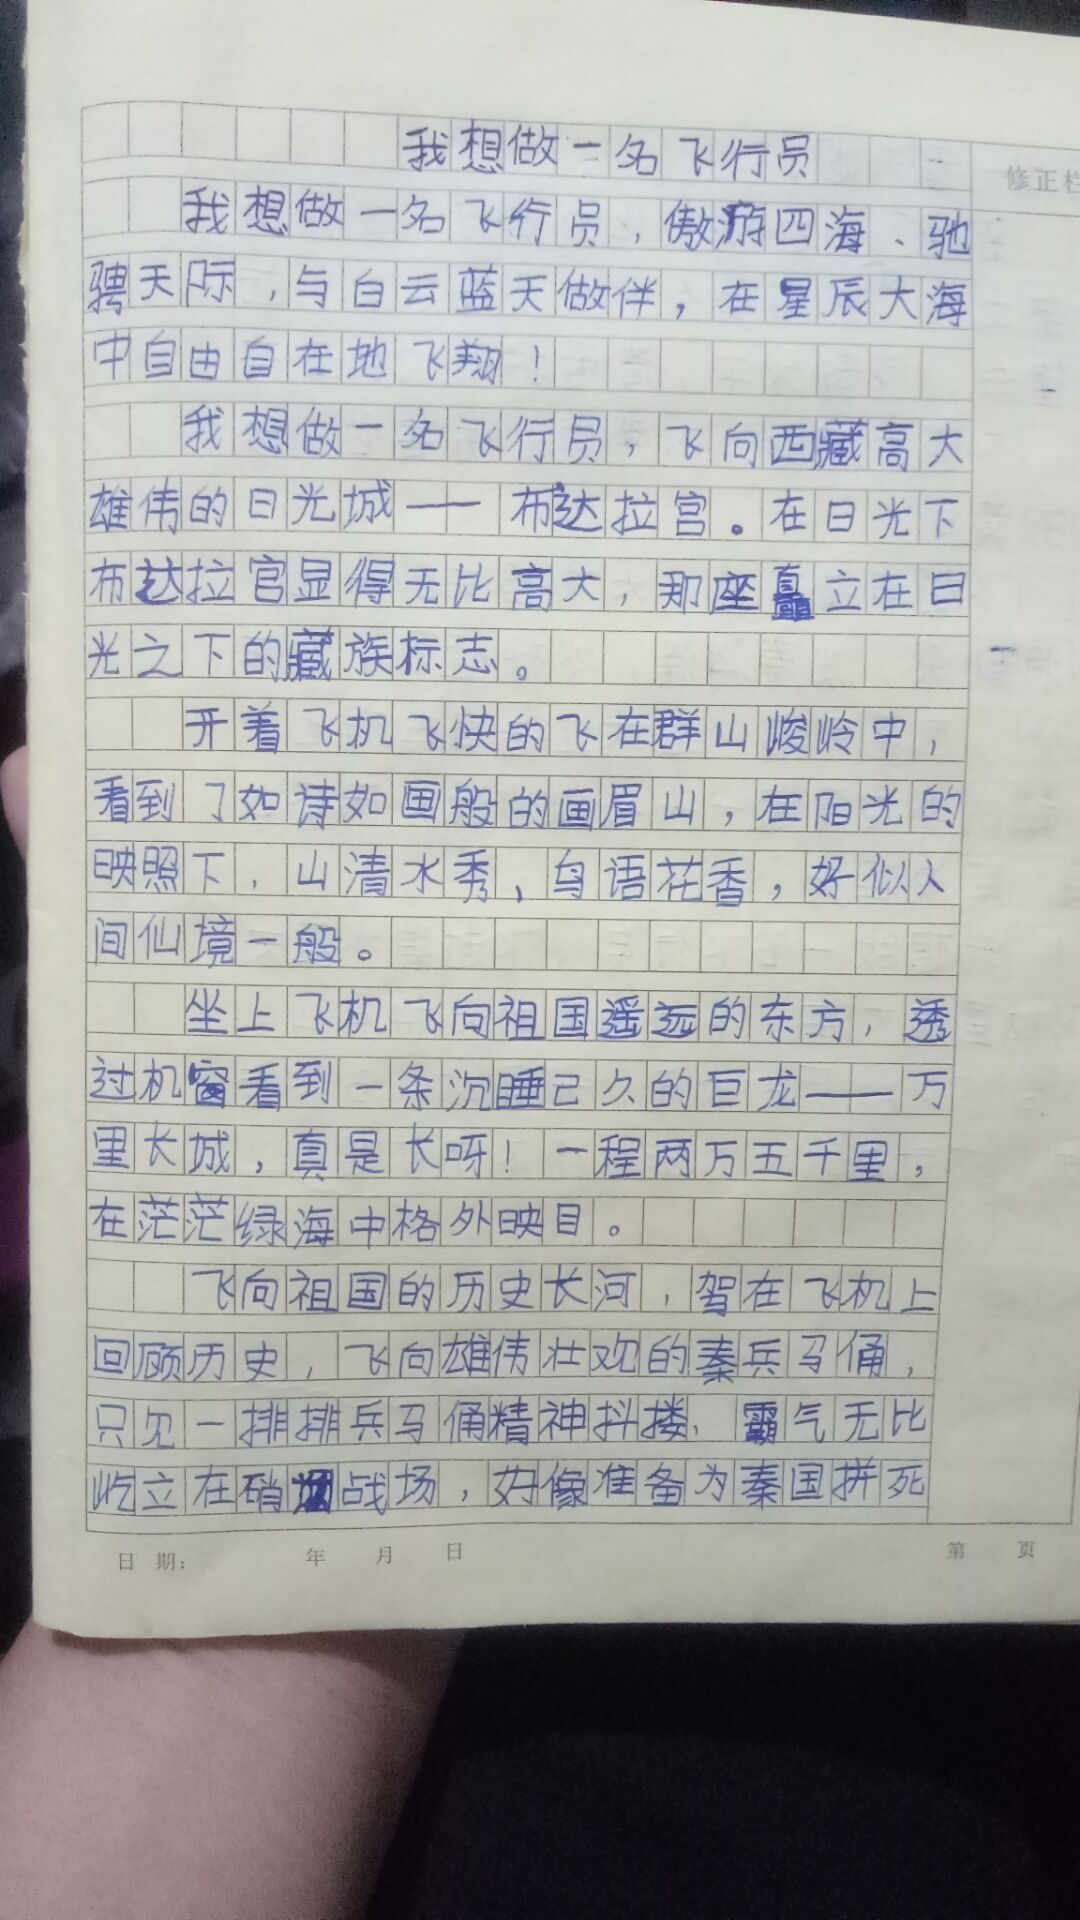 我想做一名飞行员
修正栏
我想做一名飞行员，傲游四海、驰
骋天际，与白云蓝天做伴，在星辰大海
中自由自在地飞翔！
我想做一名飞行员，飞向西藏高大
雄伟的日光城——布达拉宫。在日光下
布达拉官显得无比高大，那座矗立在日
光之下的藏族标志。
开着飞机飞快的飞在群山峻岭中，
看到了如诗如画般的画眉山，在阳光的
映照下，山清水秀、鸟语花香，好似人
间仙境一般。
坐上飞机飞向祖国遥远的东方，透
过机窗看到一条沉睡己久的巨龙——万
里长城，真是长呀！一程两万五千里，
在茫茫绿海中格外映目。
飞向祖国的历史长河，驾在飞机上
回顾历史，飞向雄伟壮观的秦兵马俑，
只见一排排兵马俑精神抖搂、霸气无比
屹立在硝战场，好像准备为秦国拼死
日期： 年 月 日 第 页